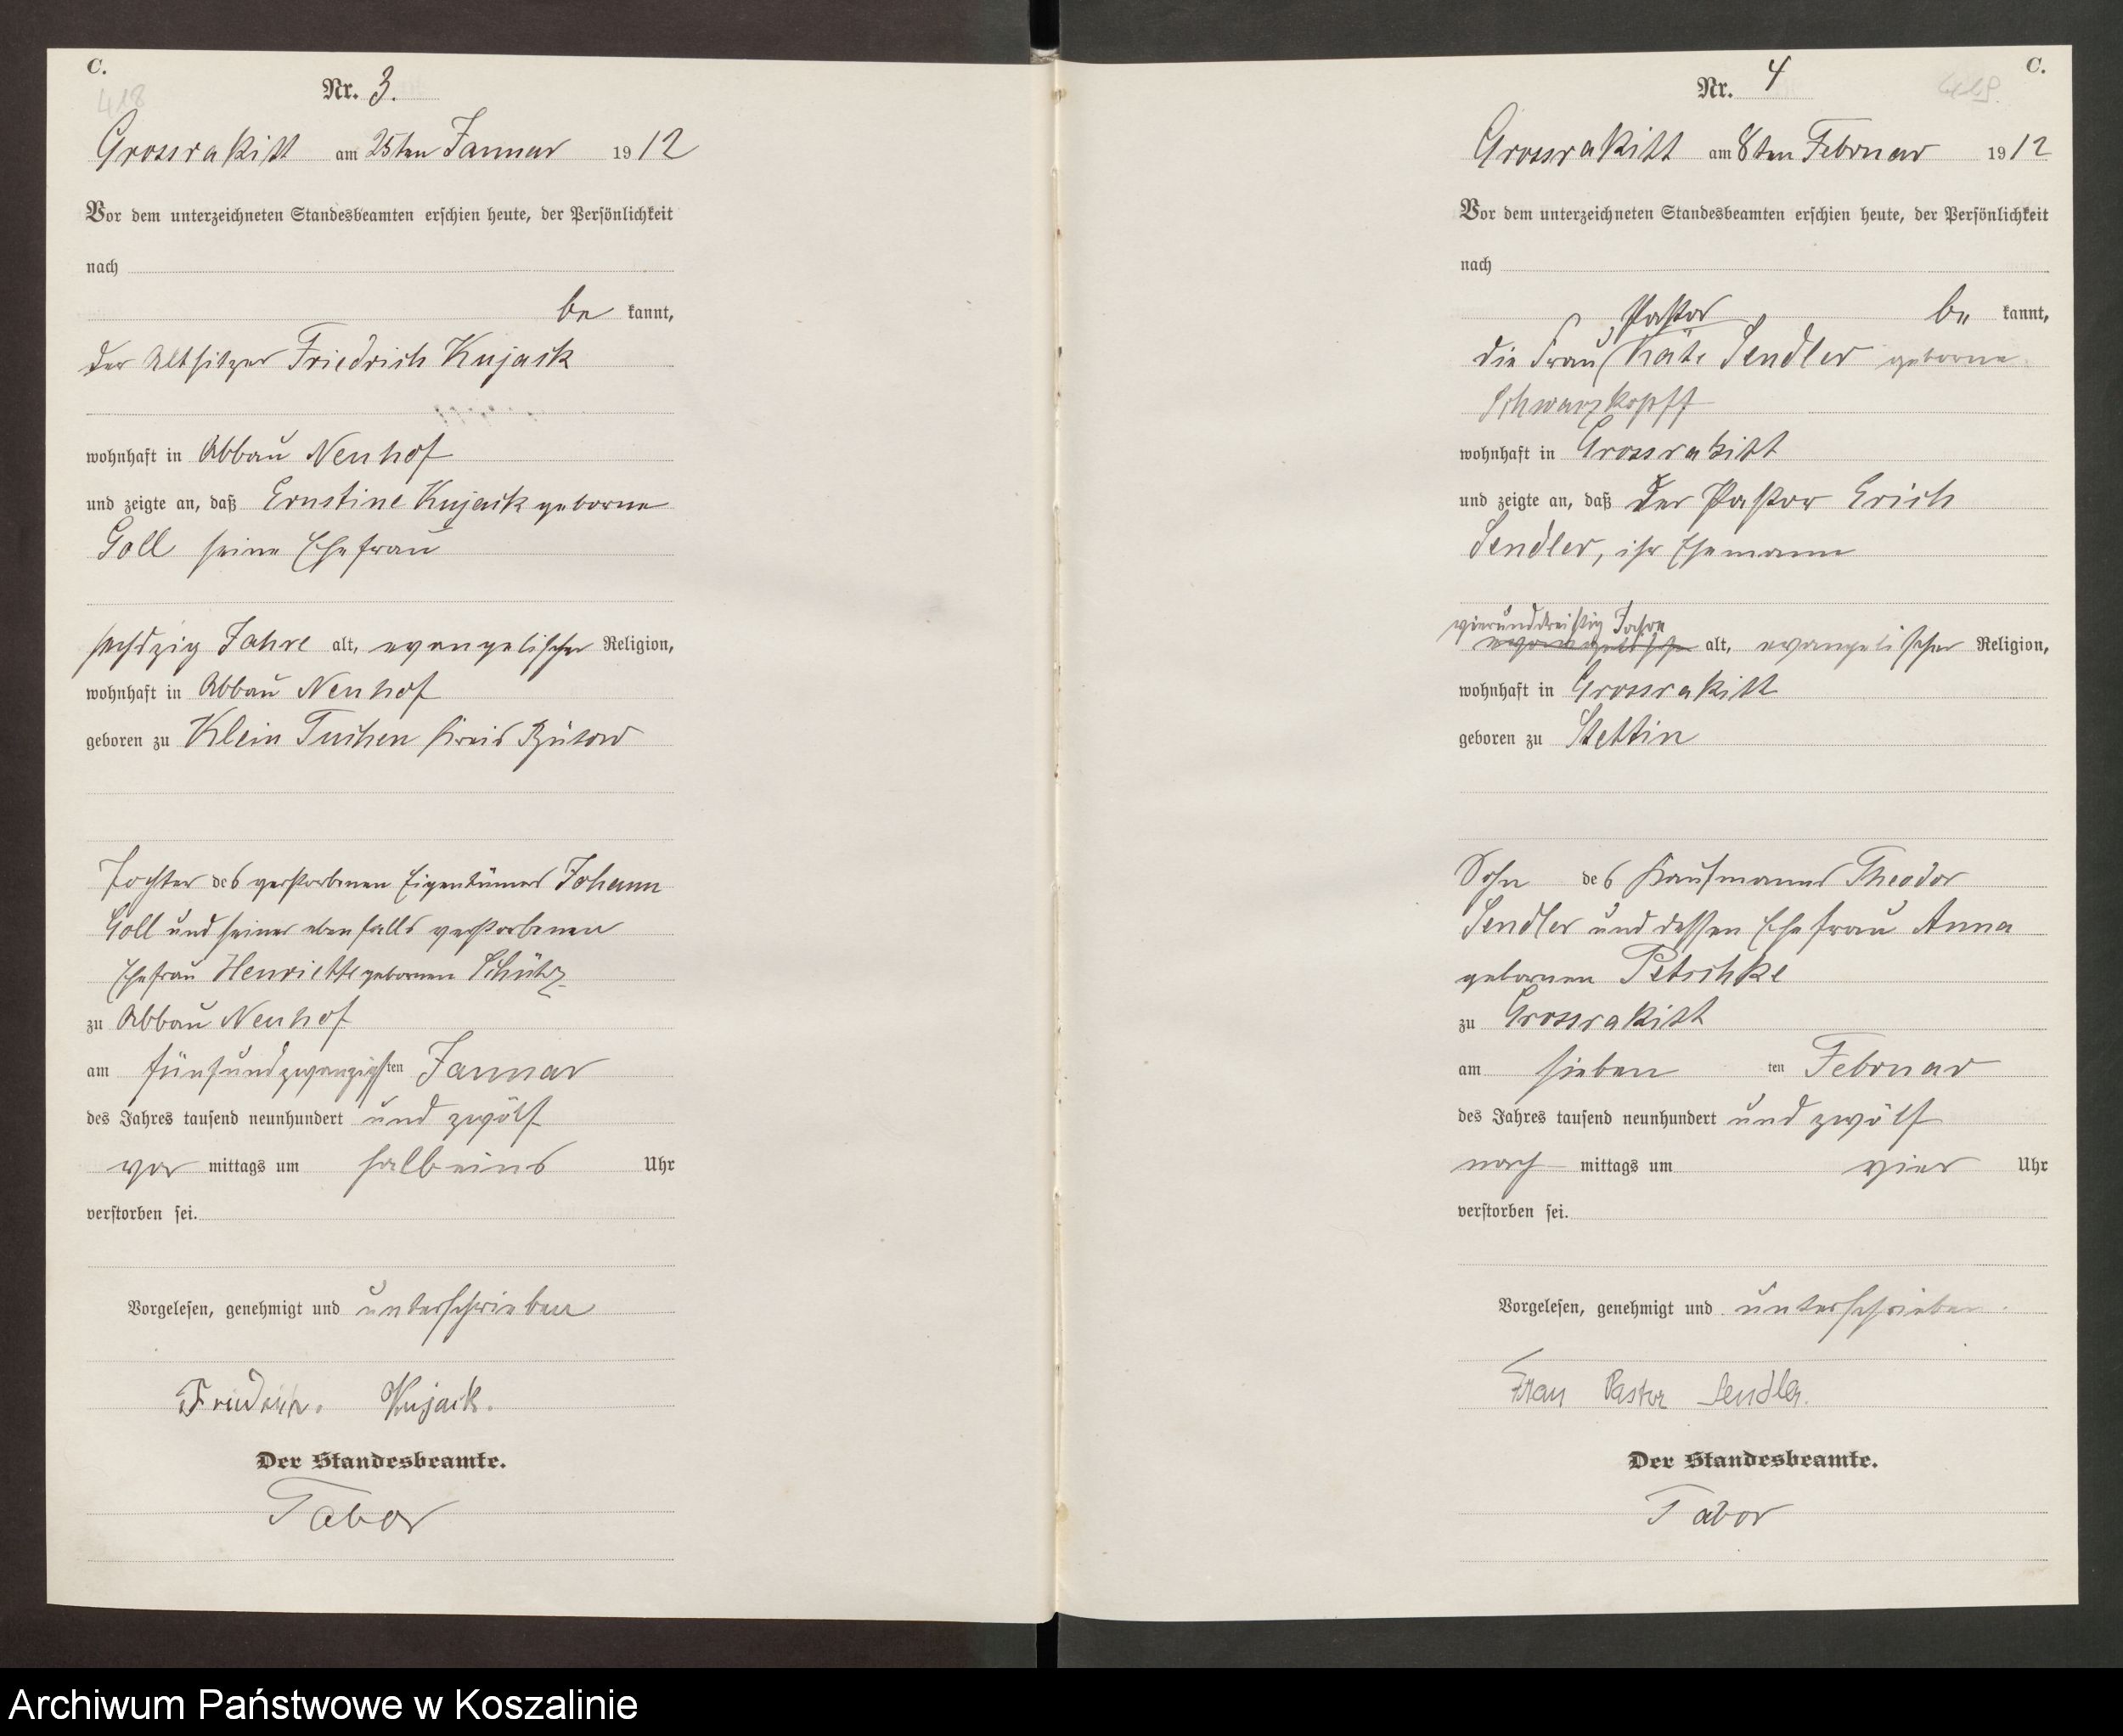 C.
418
Nr. 3.
Grossrakitt am 25ten Januar 1912
Vor dem unterzeichneten Standesbeamten erschien heute, der Persönlichkeit
nach
be kannt,
der Altsitzer Friedrich Kujack
wohnhaft in Abbau Neuhof
und zeigte an, daß Ernstine Kujack geborne
Goll seine Ehefrau
sechszig Jahre alt, evangelischer Religion,
wohnhaft in Abbau Neuhof
geboren zu Klein Tuchen Kreis Bütow
Tochter des verstorbenen Eigentümers Johann
Goll und seiner ebenfalls verstorbenen
Ehefrau Henriette gebornen Schütz
zu Abbau Neuhof
am fünfundzwanzigsten Januar
des Jahres tausend neunhundert und zwölf
vor mittags um halb eins Uhr
verstorben sei.
Vorgelesen, genehmigt und unterschrieben
Friedrich. Kujack.
Der Standesbeamte.
Tabor
C.
Nr. 4
Grossrakitt am 8ten Februar 1912
Vor dem unterzeichneten Standesbeamten erschien heute, der Persönlichkeit
nach
Pastor be kannt,
die Frau Käte Sendler geborne
Schwarzkopff
wohnhaft in Grossrakitt
und zeigte an, daß der Pastor Erich
Sendler, ihr Ehemann
vierunddreißig Jahre
evangelischer alt, evangelischer Religion,
wohnhaft in Grossrakitt
geboren zu Stettin
Sohn des Kaufmanns Theodor
Sendler und dessen Ehefrau Anna
gebornen Petschke
zu Grossrakitt
am sieben ten Februar
des Jahres tausend neunhundert und zwölf
nach mittags um vier Uhr
verstorben sei.
Vorgelesen, genehmigt und unterschrieben.
Frau Pastor Sendler.
Der Standesbeamte.
Tabor
Archiwum Państwowe w Koszalinie